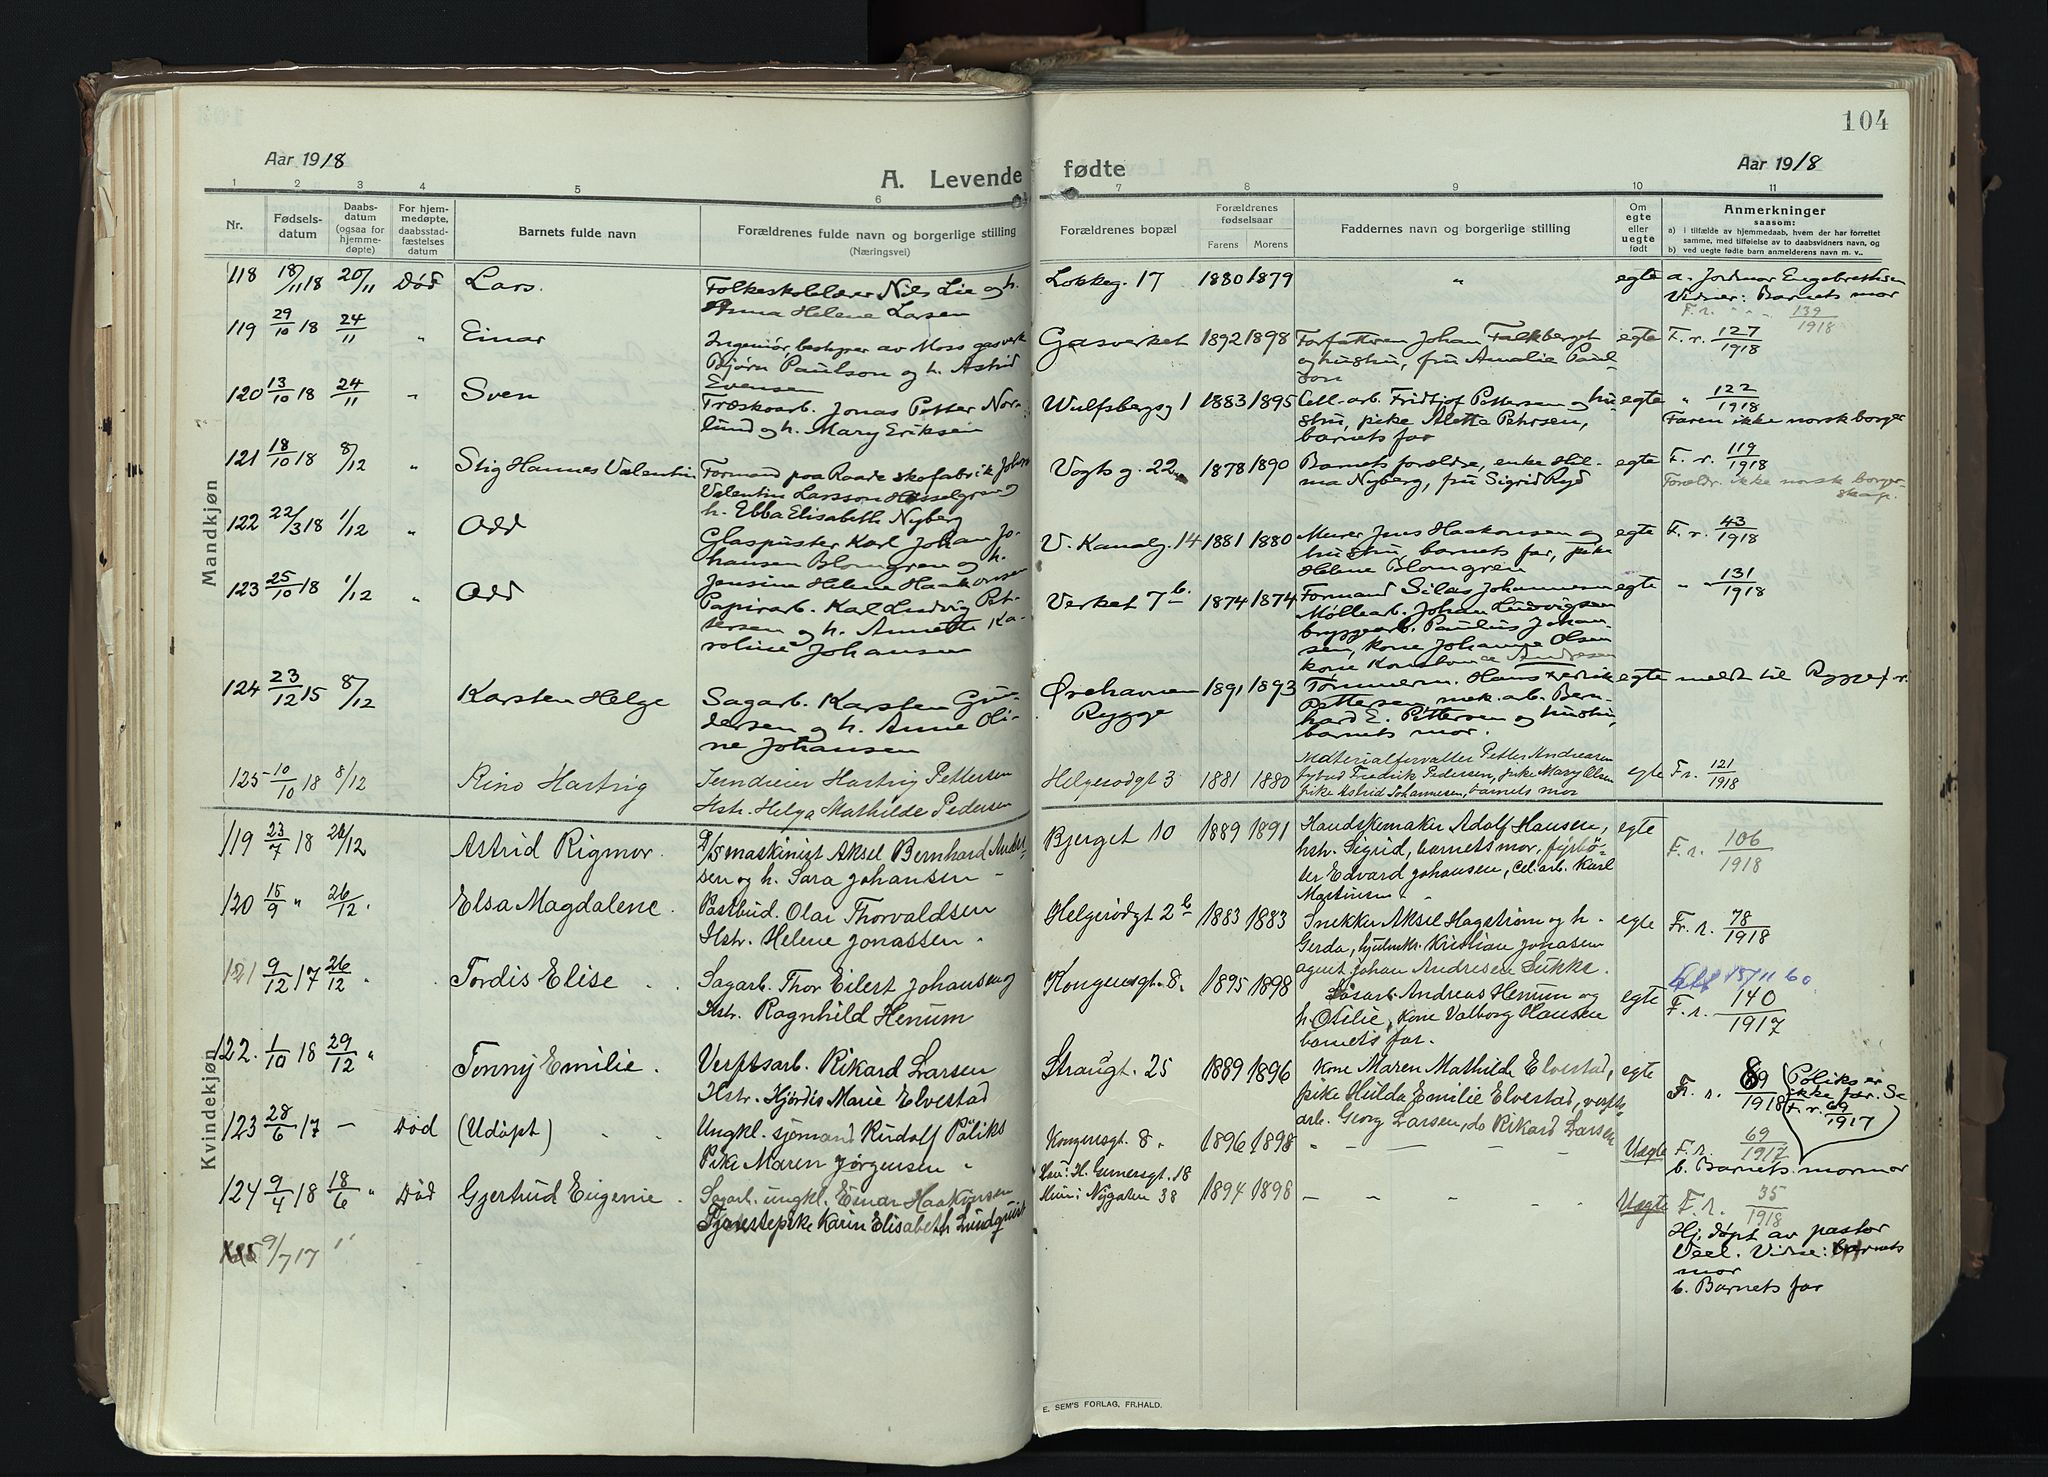 104
Aar 1918
A. Levende fødte
Aar 1918
1 2 3 4 5 6 7 8 9 10 11
Nr.
Fødsels-
datum
Daabs-
datum
(ogsaa for
hjemme-
døpte)
For hjem-
medøpte,
daabsstad-
fæstelses
datum
Barnets fulde navn
Forældrenes fulde navn og borgerlige stilling
(Næringsvei)
Forældrenes bopæl
Forældrenes
fødselsaar
Farens Morens
Faddernes navn og borgerlige stilling
Om
egte
eller
uegte
født
Anmerkninger
saasom:
a) i tilfælde av hjemmedaab, hvem der har forrettet
samme, med tilføielse av to daabsvidners navn, og
b) ved uegte fødte barn anmelderens navn m. v..
Mandkjøn
118 18/11 18 20/11 Død Lars.
Folkeskolelærer Nils Lie og h.
Anna Helene Larsen
Lokkeg. 17 1880 1879 " egte
a. Jordmor Engebretsen
Vidner: Barnets mor
F. r. 139/1918
119 29/10 18 24/11 " Einar
Ingeniør bestyrer av Moss gasverk
Bjørn Paulson og h. Astrid
Evensen
Gasverket 1892 1898
Forfatteren Johan Falkberget
og hustru, fru Amalie Paul-
son
egte F. r. 127/1918
120 13/10 18 24/11 " Sven
Træskoarb. Jonas Petter Nor-
lund og h. Mary Eriksen
Wulfsbergsg 1 1883 1895
Cell-arb. Fridtjof Pettersen og hu-
stru, pike Alette Petersen,
barnets far
egte " 122/1918
Faren ikke norsk borger
121 18/10 18 8/12 " Stig Hannes Valentin
Formand paa Raade skofabrik Johan
Valentin Larsson Hasselgren og
h. Ebba Elisabeth Nyberg
Vogts g. 22 1878 1890
Barnets forældre, enke Hil-
ma Nyberg, fru Sigrid Ryd
egte F. r. 119/1918
Forældr. ikke norsk borger-
skap.
122 22/3 18 1/12 " Odd
Glaspuster Karl Johan Jo-
hansen Blomgren og h.
Jensine Helene Haakonsen
V. Kanalg. 14 1881 1880
Murer Jens Haakonsen og
hustru, barnets far, pike
Helene Blomgren
egte F. r. 43/1918
123 25/10 18 1/12 " Odd
Papirarb. Karl Ludvig Pet-
tersen og h. Annette Ka-
roline Johansen
Verket 7 b. 1874 1874
Formand Silas Johannesen
Møllearb. Johan Ludvigsen
bryggearb. Paulus Johan-
sen, kone Johanne Olsen
kone Konstance Andresen
egte " 131/1918
124 23/12 15 8/12 Karsten Helge
Sagarb. Karsten Gun-
dersen og h. Anne Oli-
ne Johansen
Ørehavnen
Rygge
1891 1893
Tømmerm. Hans Fredrik
Pettersen, mek. arb. Ben-
hard E. Pettersen og hustru,
barnets mor.
egte meldt til Rygge f. r.
125 10/10 18 8/12 Rino Hartvig
Jerndreier Hartvig Pettersen
Hstr. Helga Mathilde Pedersen
Helgerødgt 3 1881 1880
Materialforvalter Petter Andreasen
Fredrik Pedersen, pike Mary Olsen
pike Astrid Johannesen, barnets mor
egte F. r. 121/1918
Kvindekjøn
119 23/7 18 26/12 Astrid Rigmor.
D/S maskinist Aksel Bernhard Ander-
sen og h. Sara Johansen
Bjerget 10 1889 1891
Handskemaker Adolf Hansen,
hstr. Sigrid, barnets mor, fyrbø-
ter Edvard Johansen, Cel. arb. Karl
Martinsen
egte F. r. 106/1918
120 15/9 " 26/12. Elsa Magdalene.
Postbud. Olaf Thorvaldsen
Hstr. Helene Jonassen.
Helgerødgt 2 b 1883 1883
Snekker Aksel Hagstrøm og h.
Gerda, hjulmkr. Kristian Jonasen
agent Johan Andresen Sukke.
egte Fr. r. 78/1918
121 9/12 17 26/12 Tordis Elise.
Sagarb. Thor Eilert Johansen og
Hstr. Ragnhild Henum
Kongensgt. 8. 1895 1898
Andreas Henum og
h. Otilie, kone Valborg Hansen
barnets far.
egte
15/11 60
F. r. 140/1917
122. 1/10 18 29/12 " Tonny Emilie.
Verftsarb. Rikard Larsen
Hstr. Hjørdis Marie Elvestad
Strandgt. 25 1889 1896
Kone Maren Mathilde Elvestad,
pike Hilda Emilie Elvestad, verfts-
arb. Georg Larsen, do Rikard Larsen
egte Fr. r. 89/1918
(Poliks er
ikke far. Se
F. r. 69/1917)
123 28/6 17 — Død (Udøpt)
Ungkl. sjømand Rudolf Poliks
Pike Maren Jørgensen
Kongensgt 8. 1896 1898
Uegte F. r. 69/1917
b. Barnets mormor
124 9/4 18 18/6 " Død Gjertrud Eugenie.
Sagarb. ungkl. Einar Haakonsen
Tjenestepike Karin Elisabeth Lundquist
Han: H. Gernersgt. 18
Hun: Nygaten 38
1894 1896
Uegte F. r. 35/1918
Hj. døpt av pastor
Veel. Vidne: barnets
mor
b. Barnets far
9/7 17
E. SEM'S FORLAG, FR.HALD.